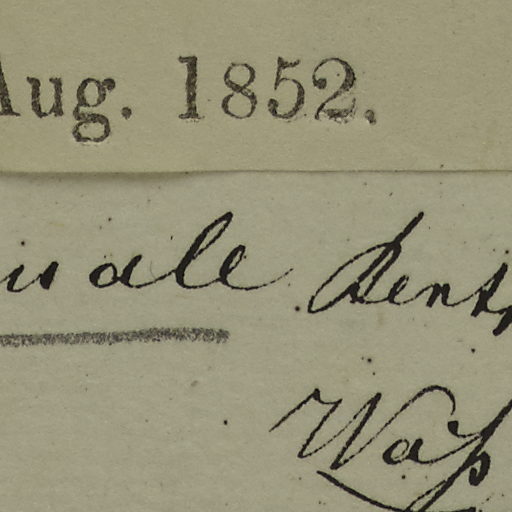 Aug. 1852.
uale Benth
Waſs